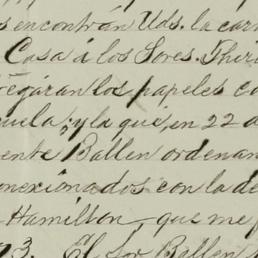 s encontrán Uds. la car
Casa á los Sores. Thir
egáran los papeles co
uela; y la que, en 22 a
ente Ballen ordenan
onexionados con la de
Hamilton, que me p
3. El Sor Ballen